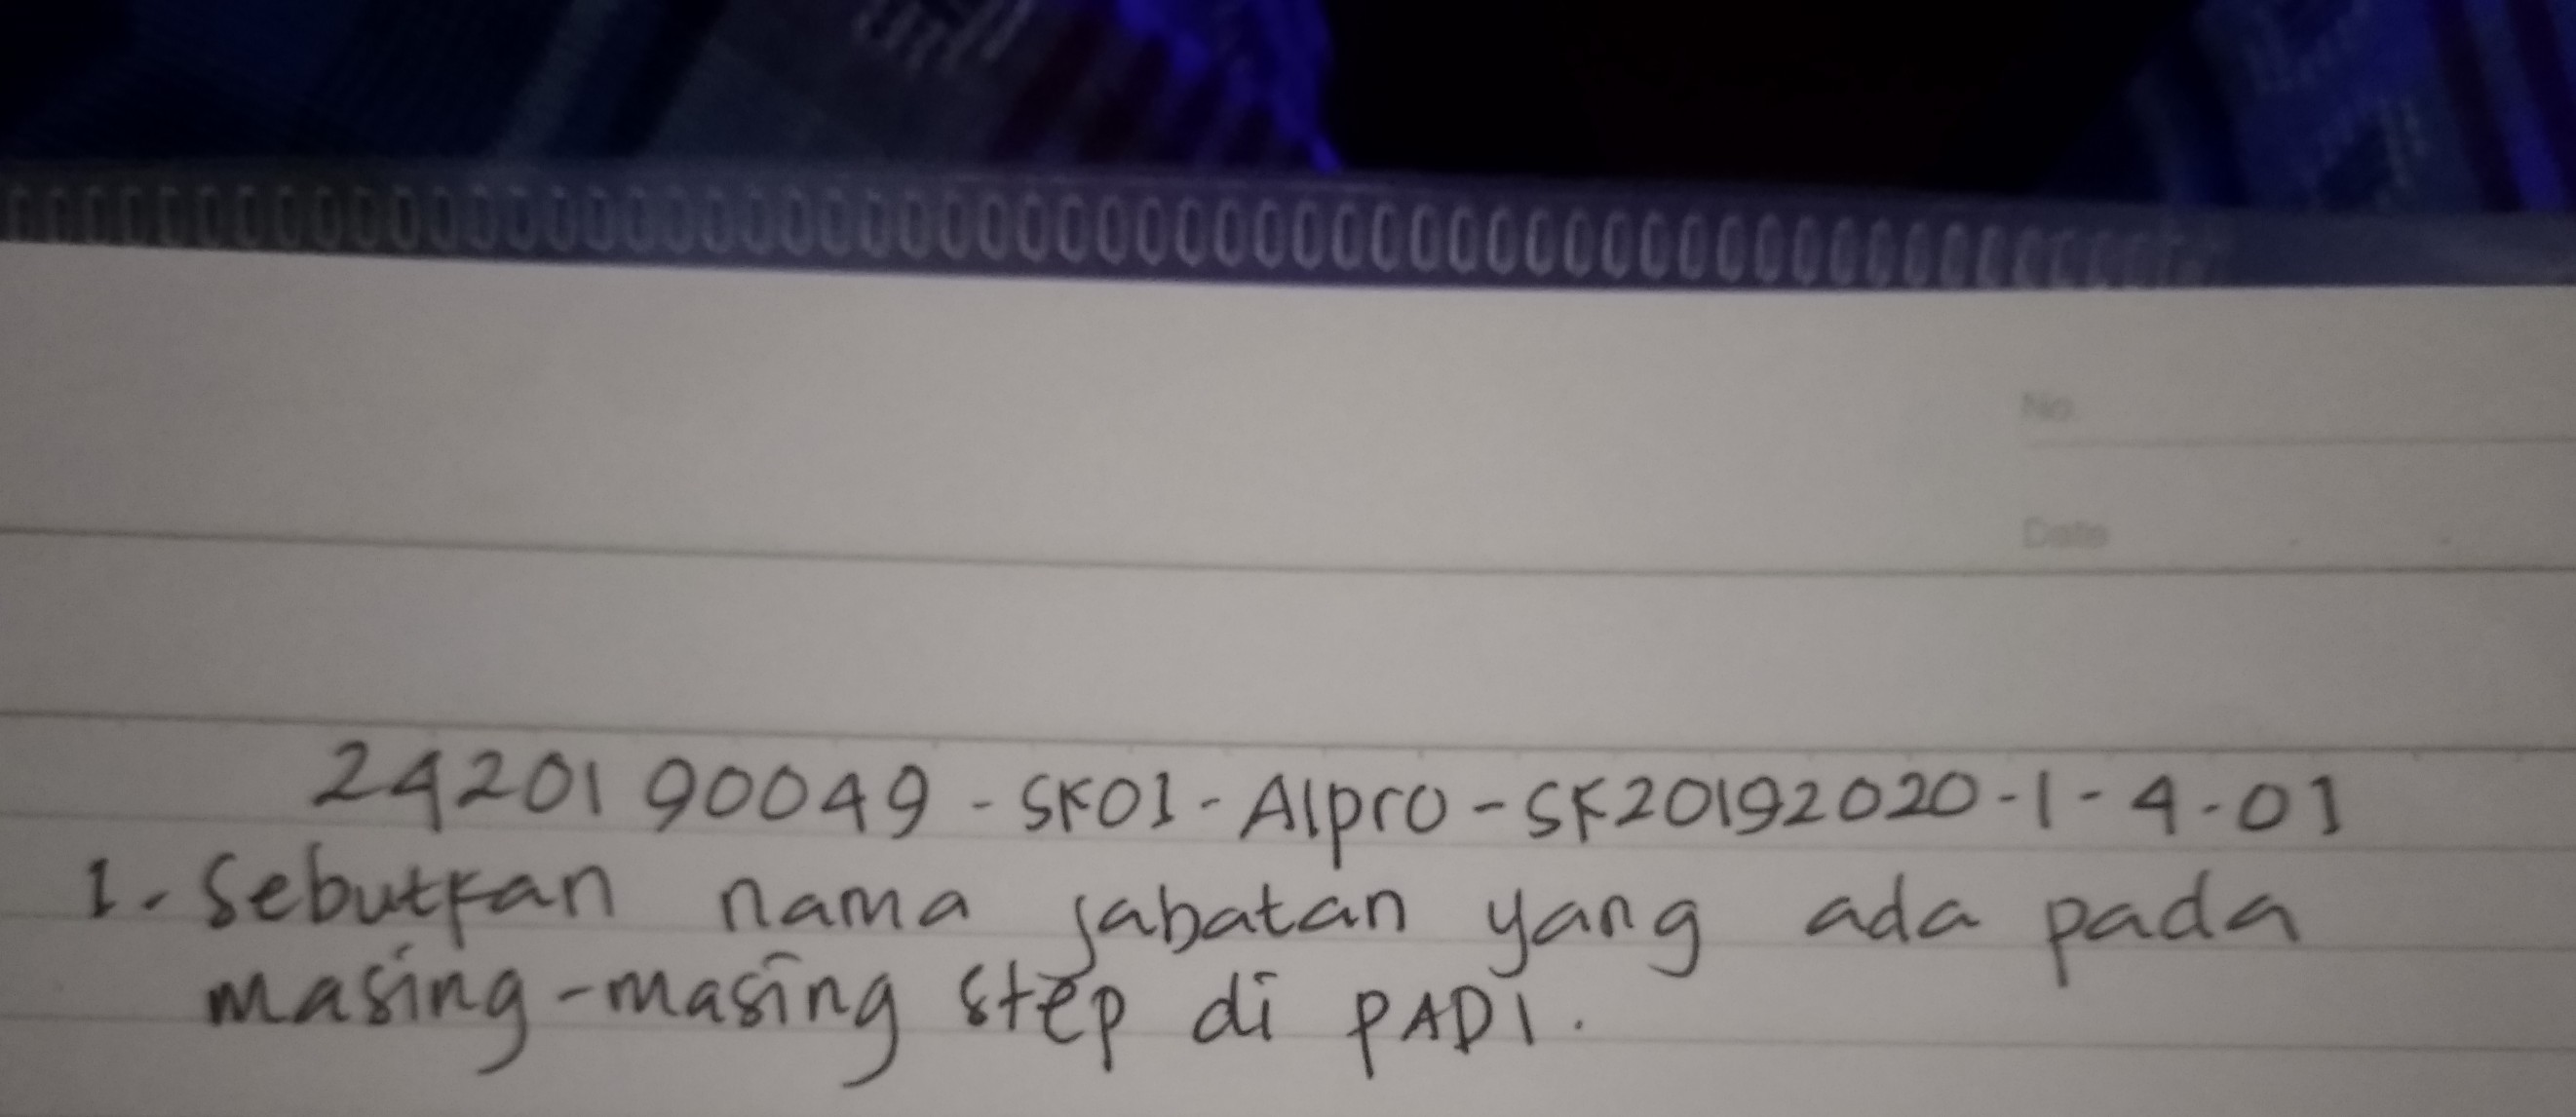 No
Date
2420190049 - SK01 - Alpro - SK20192020-1-4-01
1. Sebutkan nama jabatan yang ada pada
masing-masing step di PADI.